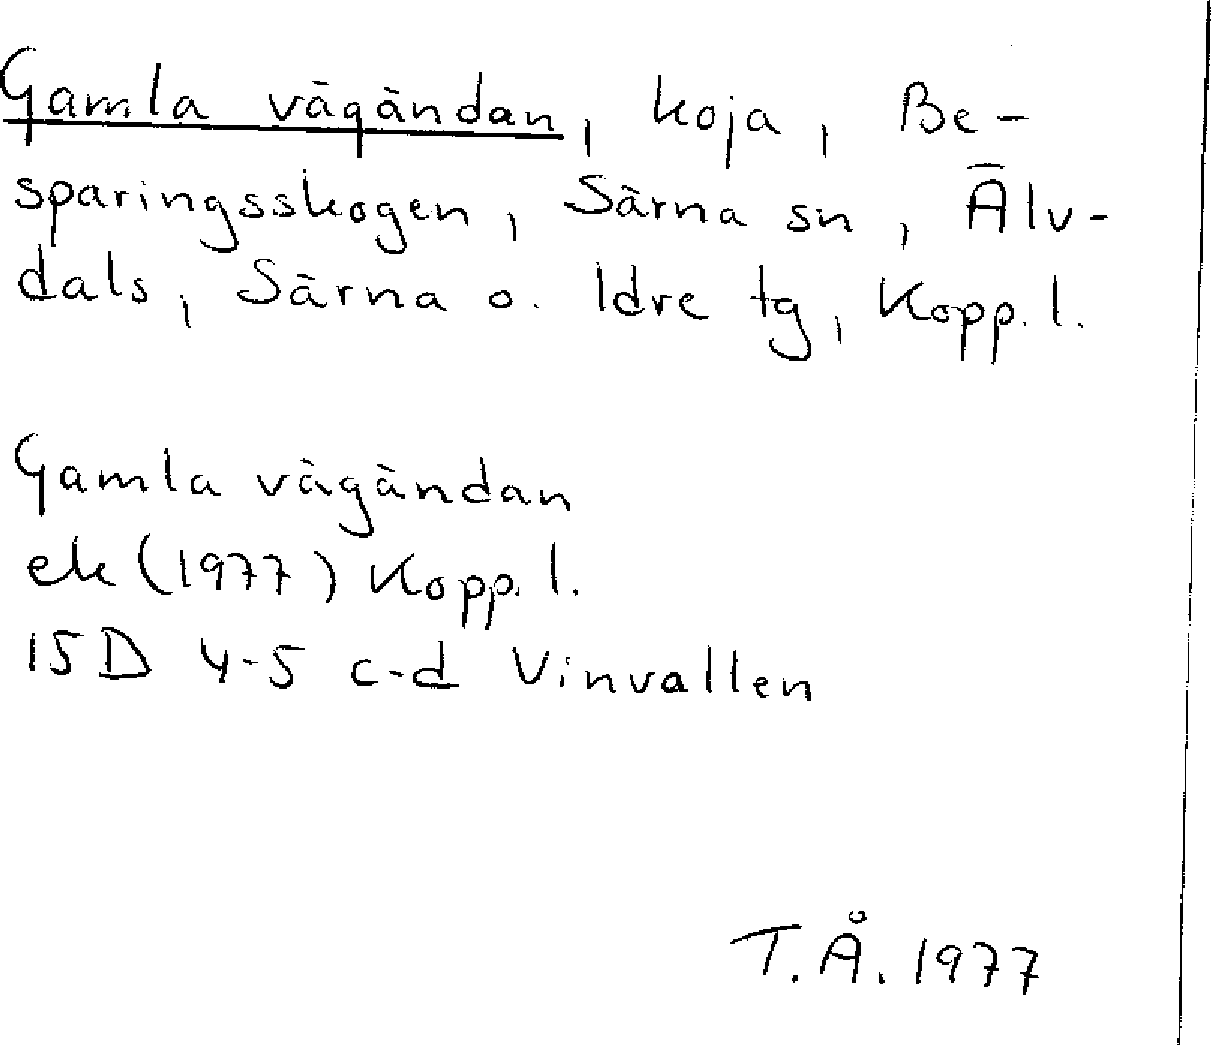 Gamla vägändan, koja, Be-
sparingsskogen, Särna sn, Älv-
dals, Särna o. Idre tg, Kopp. l.
Gamla vägändan
ek (1977) Kopp. l.
15D 4-5 c-d Vinvallen
T.Å. 1977